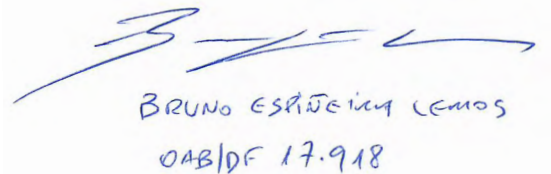 BRUNO ESPIÑEIRA LEMOS
OAB/DF 17.918